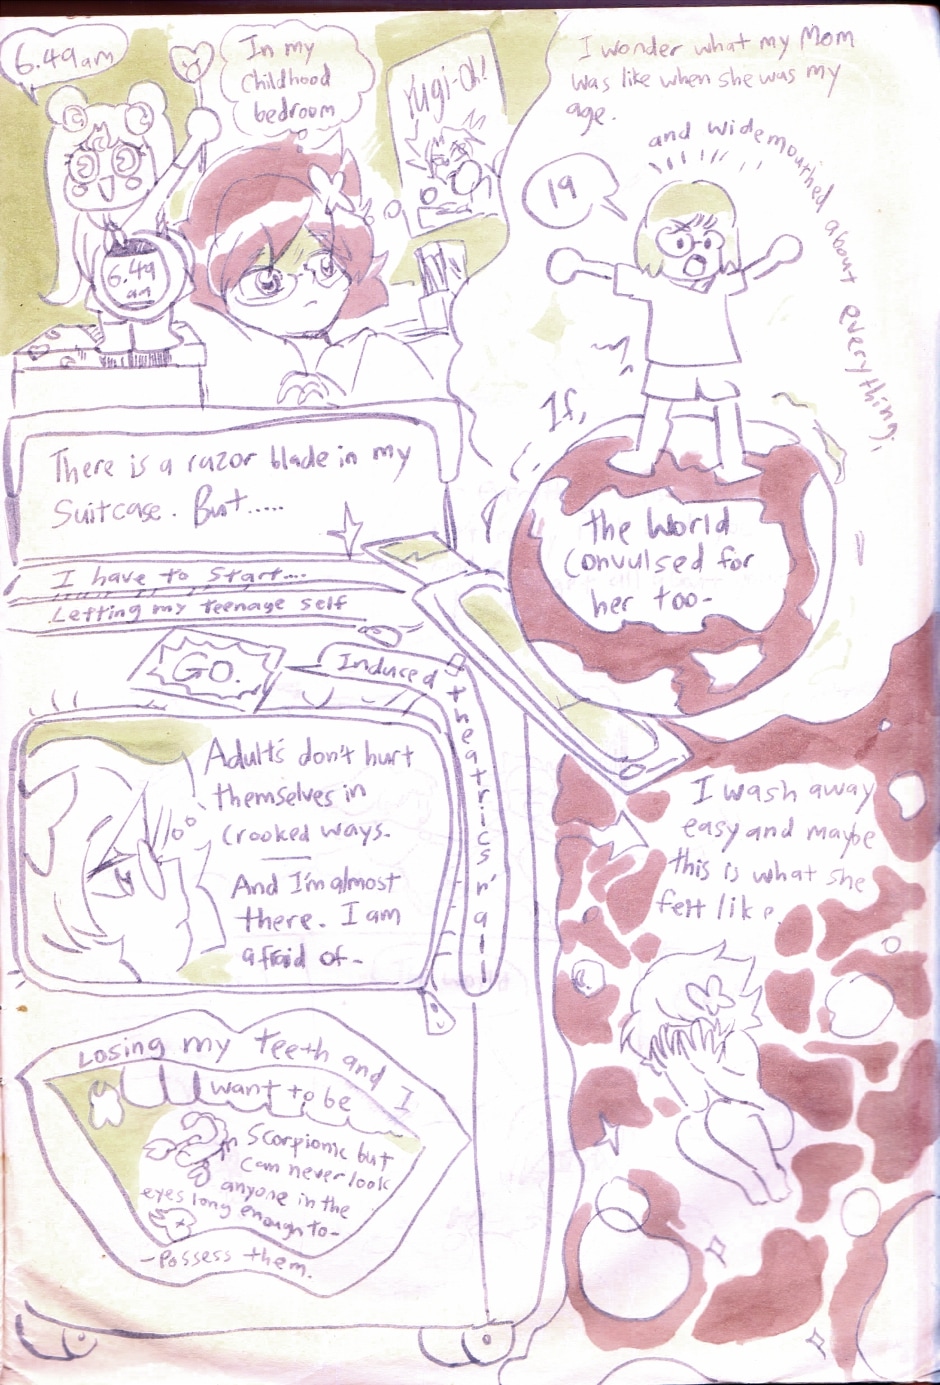 6.49am
In my
Childhood
bedroom
Yugi-Oh!
6.49
am
I wonder what my Mom
was like when she was my
age.
and widemouthed about everything.
19
If,
the World
Convulsed for
her too-
There is a razor blade in my
Suitcase. But.....
I have to Start....
Letting my teenage self
GO.
Induced
theatrics n' all
Adults don't hurt
themselves in
crooked ways.
And I'm almost
there. I am
afraid of-
Losing my teeth and I
want to be
Scorpionic but
can never look
anyone in the
eyes long enough to-
-Possess them.
I wash away
easy and maybe
this is what she
felt like.